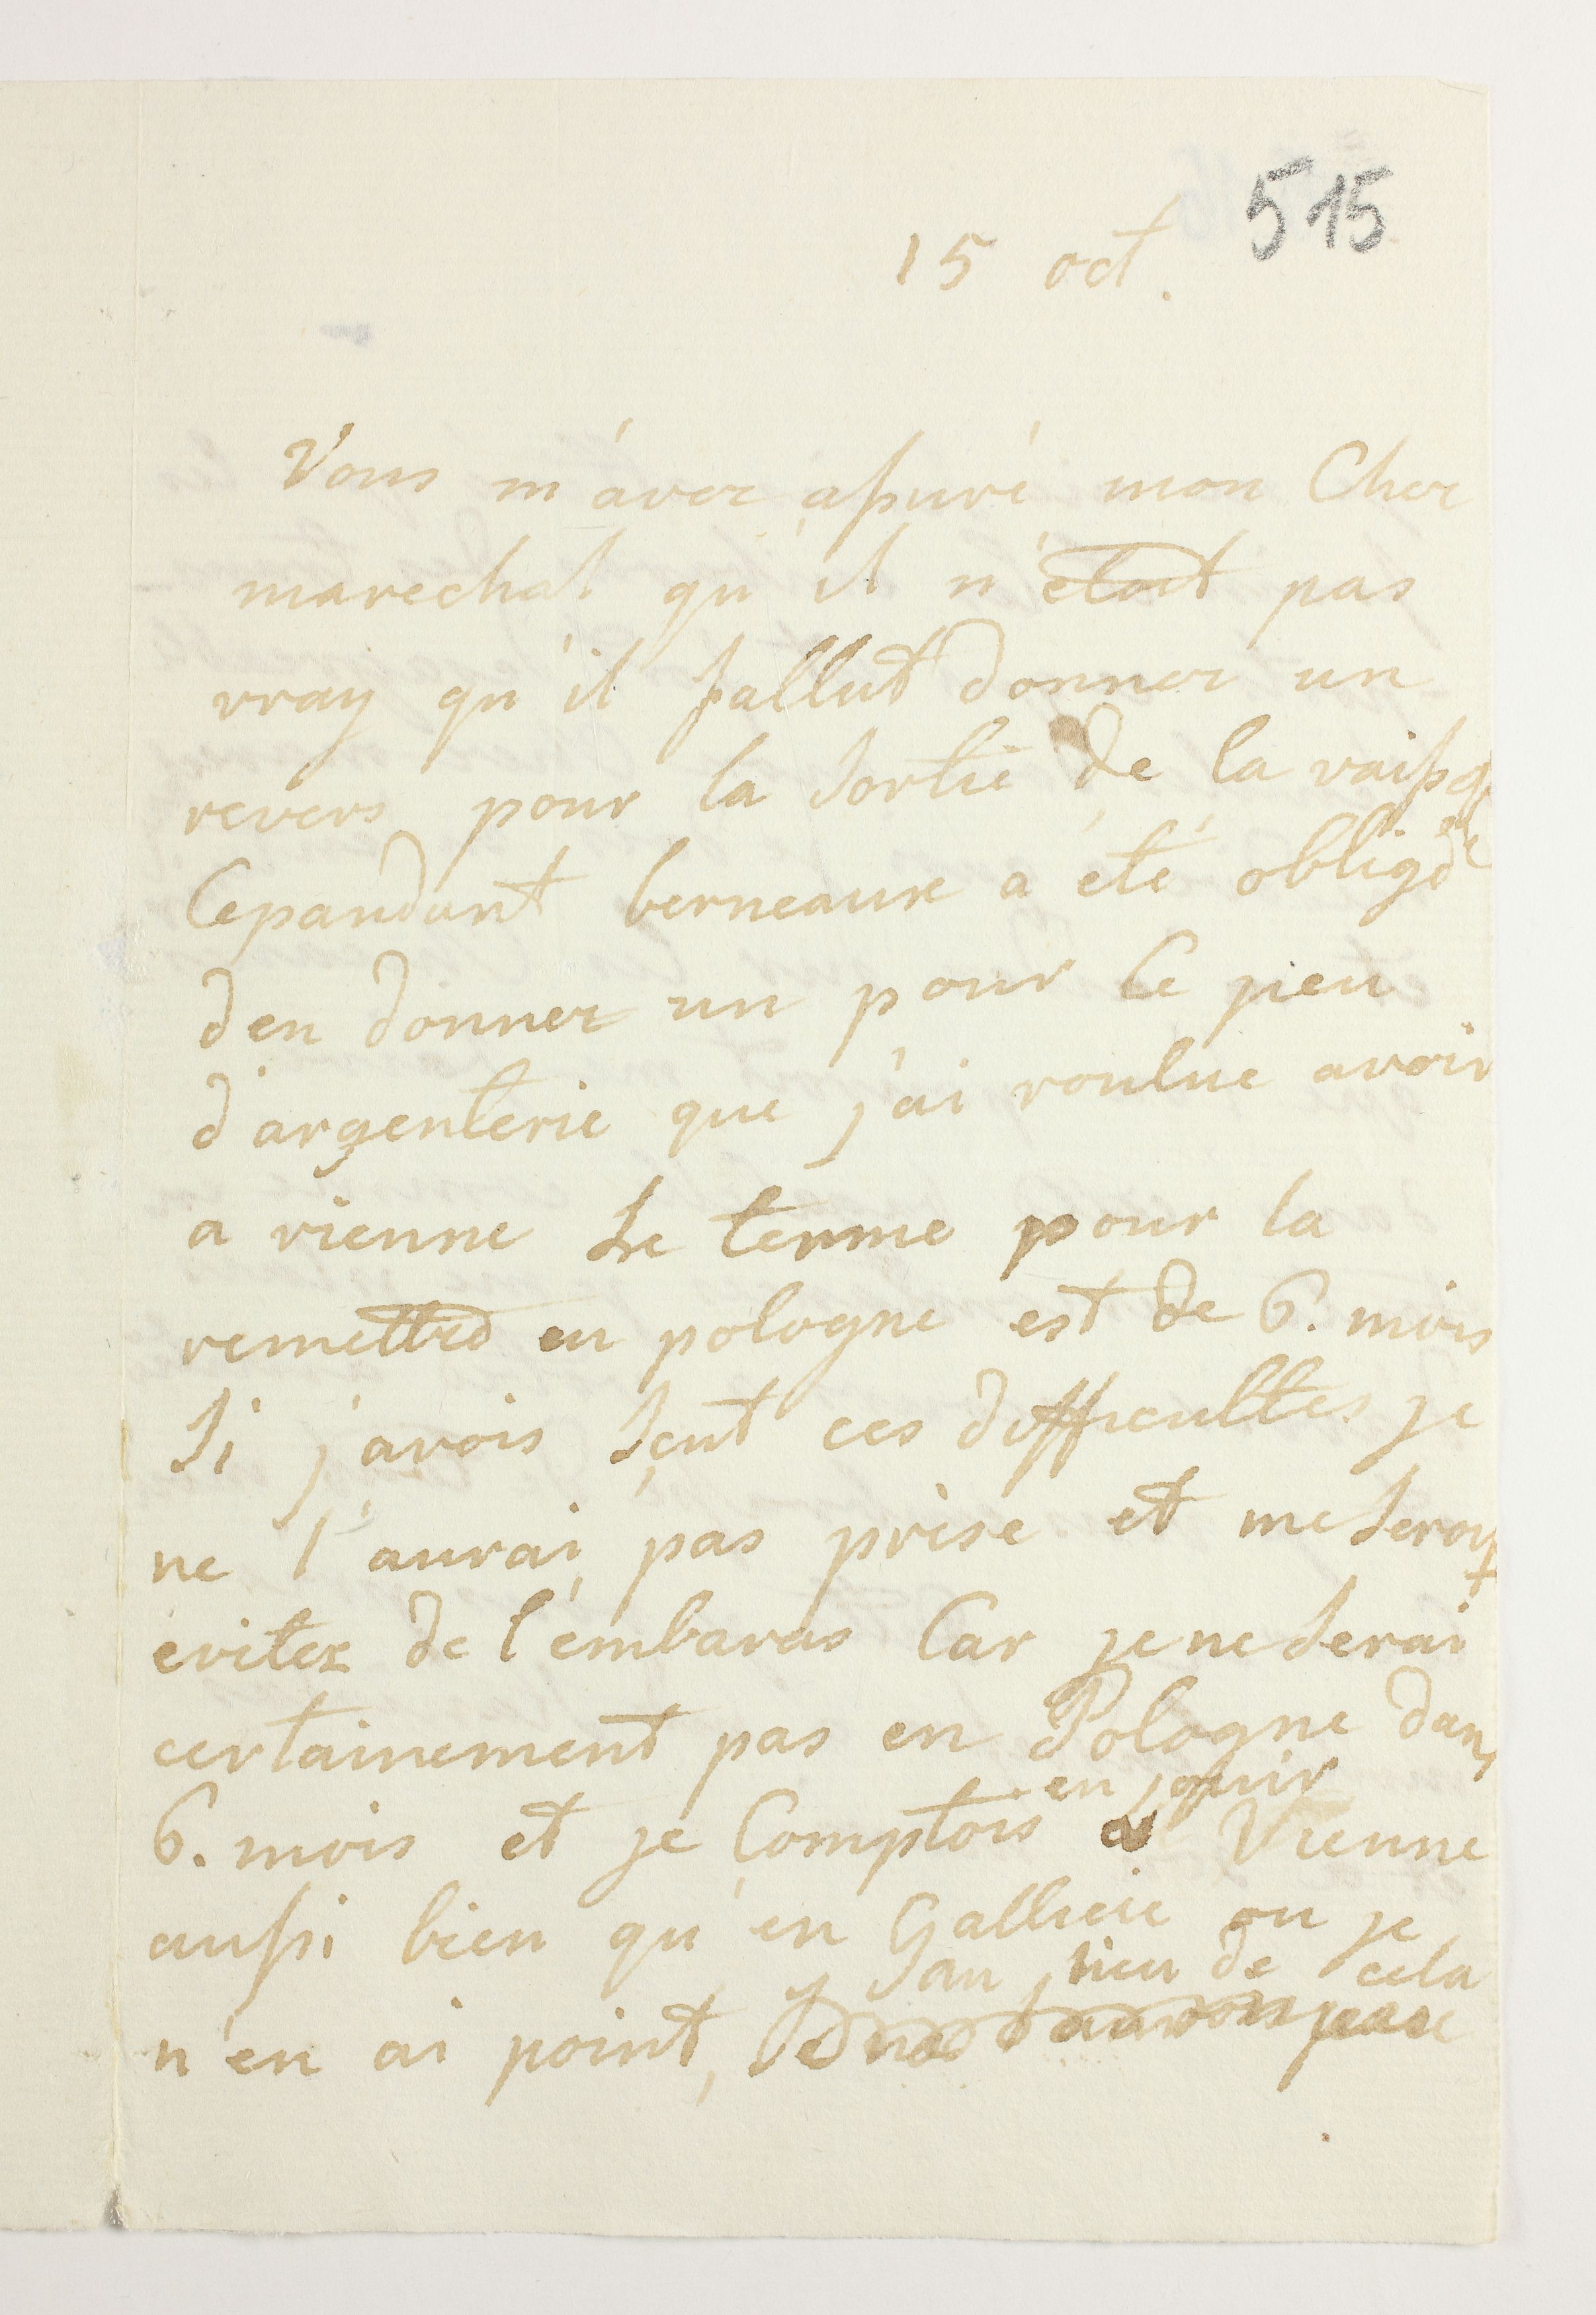 515
15 oct.
Vous m'avez assuré mon Cher
marechal qu'il n'étoit pas
vray qu'il fallut donner un
revers pour la sortie de la vaisselle
Cepandant berneaux a été obligé
d'en donner un pour le peu
d'argenterie que j'ai voulue avoir
a vienne Le terme pour la
remettre en pologne est de 6. mois
Si j'avois sçut ces difficultes je
ne l'aurai pas prise et me serois
evitez de l'embaras Car je ne serai
certainement pas en Pologne dans
6. mois et je Comptois en jouir a Vienne
aussi bien qu'en Gallicie ou je
n'en ai point, au lieu de cela